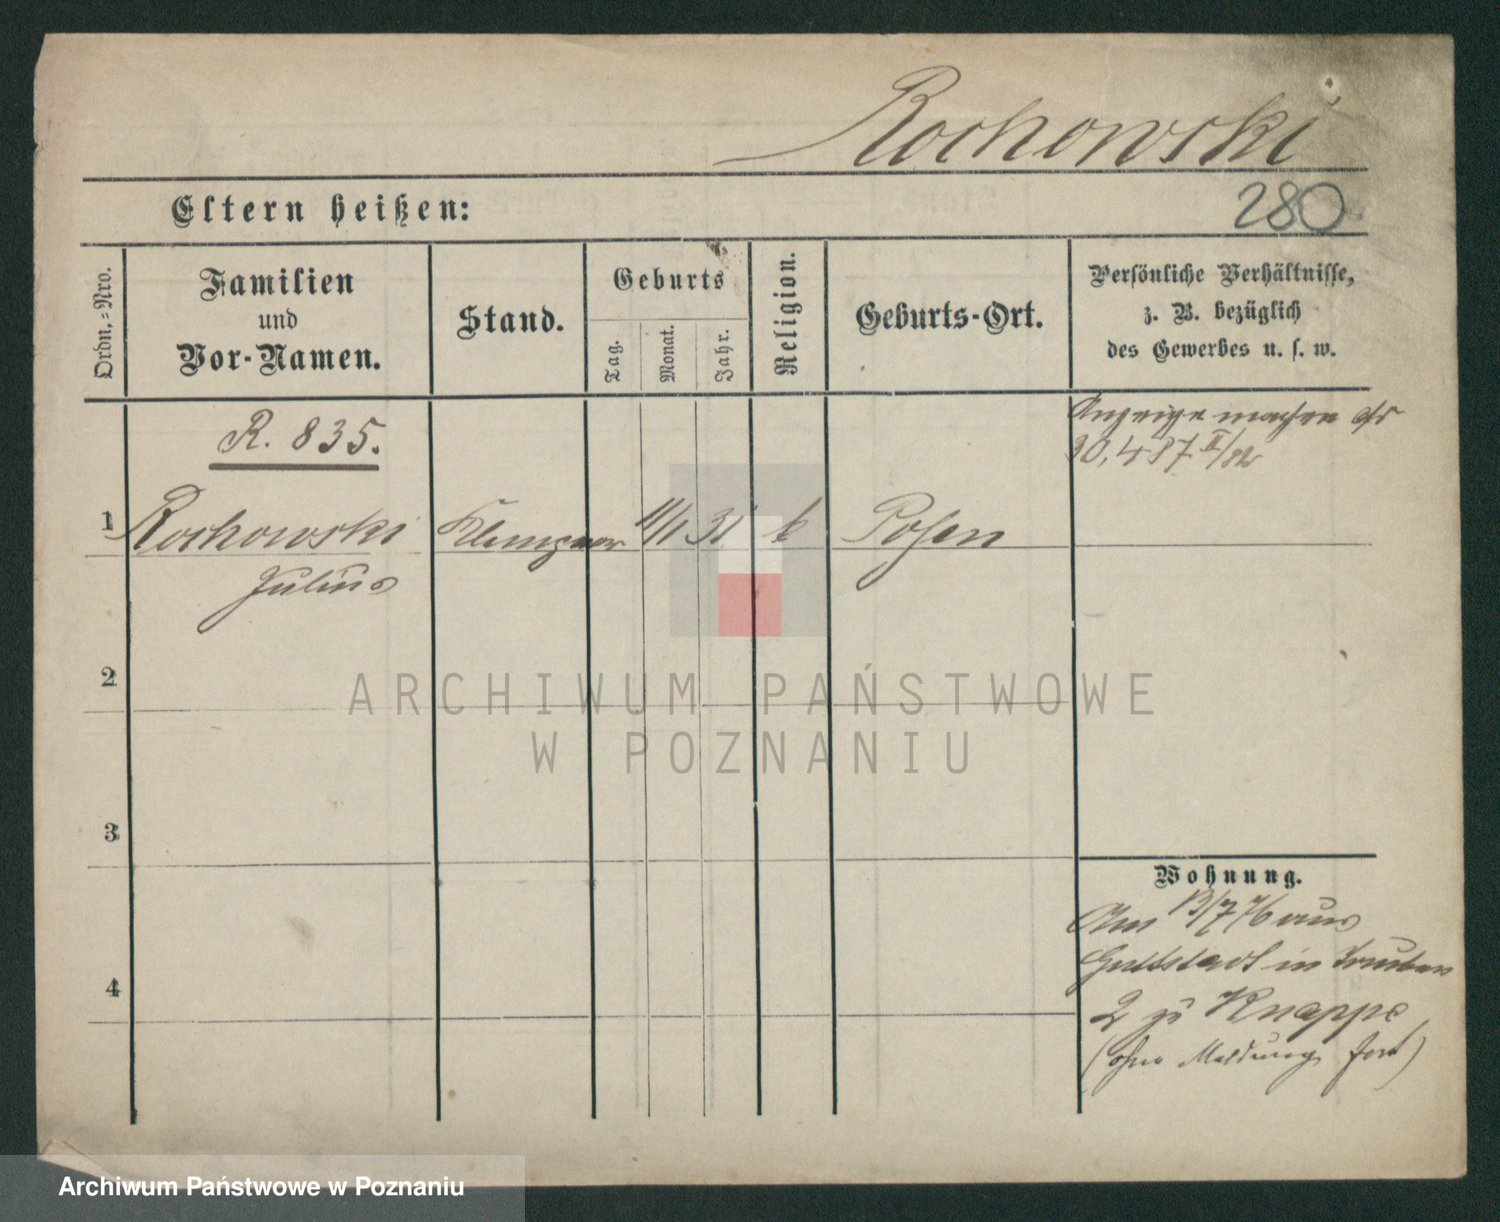 Rochowski
Eltern heißen:
280
Ordn.=Nro.
Familien
und
Vor-Namen.
Stand.
Geburts
Tag.
Monat.
Jahr.
Religion.
Geburts-Ort.
Persönliche Verhältnisse,
z. B. bezüglich
des Gewerbes u. s. w.
R. 835.
Anzeige machen
30,487 II/82
1
Rochowski
Julius
Klempner
11/1
31
k
Posen
2
3
4
Wohnung.
Am 13/7 76 aus
Guttstadt in
2 zu Knappe
(ohne Meldung fort)
ARCHIWUM PAŃSTWOWE
W POZNANIU
Archiwum Państwowe w Poznaniu